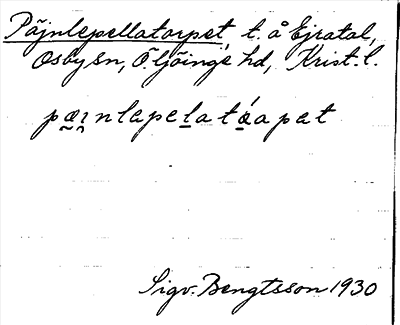 Päjnlepellatorpet t. å Ejratal,
Osby sn, Ö. Göinge hd, Krist. l.
pæɪnlepelatɑ́apet
Sigv. Bengtsson 1930